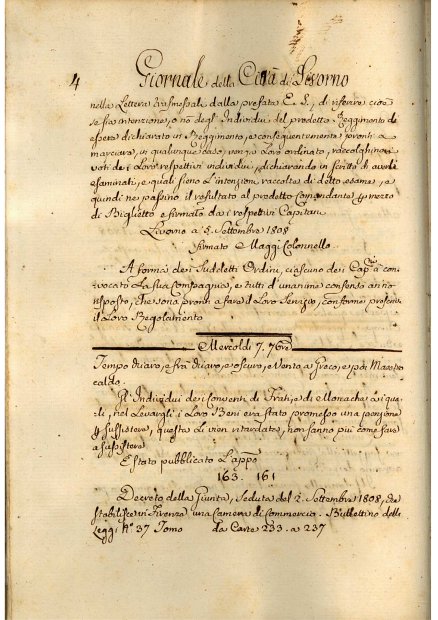 4
Giornale della Città di Livorno
nella Lettera trasmessale dalla prefata E. S., di riferire cioè
se sia intenzione, o nò degl'Individui del predetto Reggimento di
esser dichiarato in Reggimento, e conseguentemente pronti a
marciare, in qualunque caso venga Loro ordinato, raccolghino i
voti dei Loro respettivi individui, dichiarando in scritto di averli
esaminati, e quali sieno L'intenzioni raccolte di detto esame, e
quindi ne passino il resultato al predetto Comandante p. mezzo
di Biglietto e firmato da i respettivi Capitani
Livorno a 5. Settembre 1808
firmato Maggi Colonnello
A forma dei Suddetti Ordini, ciascuno dei Cap.ni à con-
vocato La sua Compagnia, e tutti d'unanime consenso anno
risposto, che sono pronti a fare il Loro Servizio, conforme prescrive
il Loro Regolamento
Mercoldì 7. 7bre
Tempo chiaro, e fra chiaro, e oscuro, e Vento a Greco, e poi Maestro
caldo.
Gl'Individui dei Conventi di Frati, e di Monache, ai qua-
li, nel Levargli i Loro Beni era stato promesso una pensione
p. sussistere, questa li vien ritardata, non sanno più come fare
a sussistere
È stato pubblicato L'app.o
163. 161
Decreto della Giunta, Seduta del 2. Settembre 1808, che
stabilisce in Firenze una Camera di Commercio. Bullettino delle
Leggi N.o 37 Tomo da Carte 233. a 237